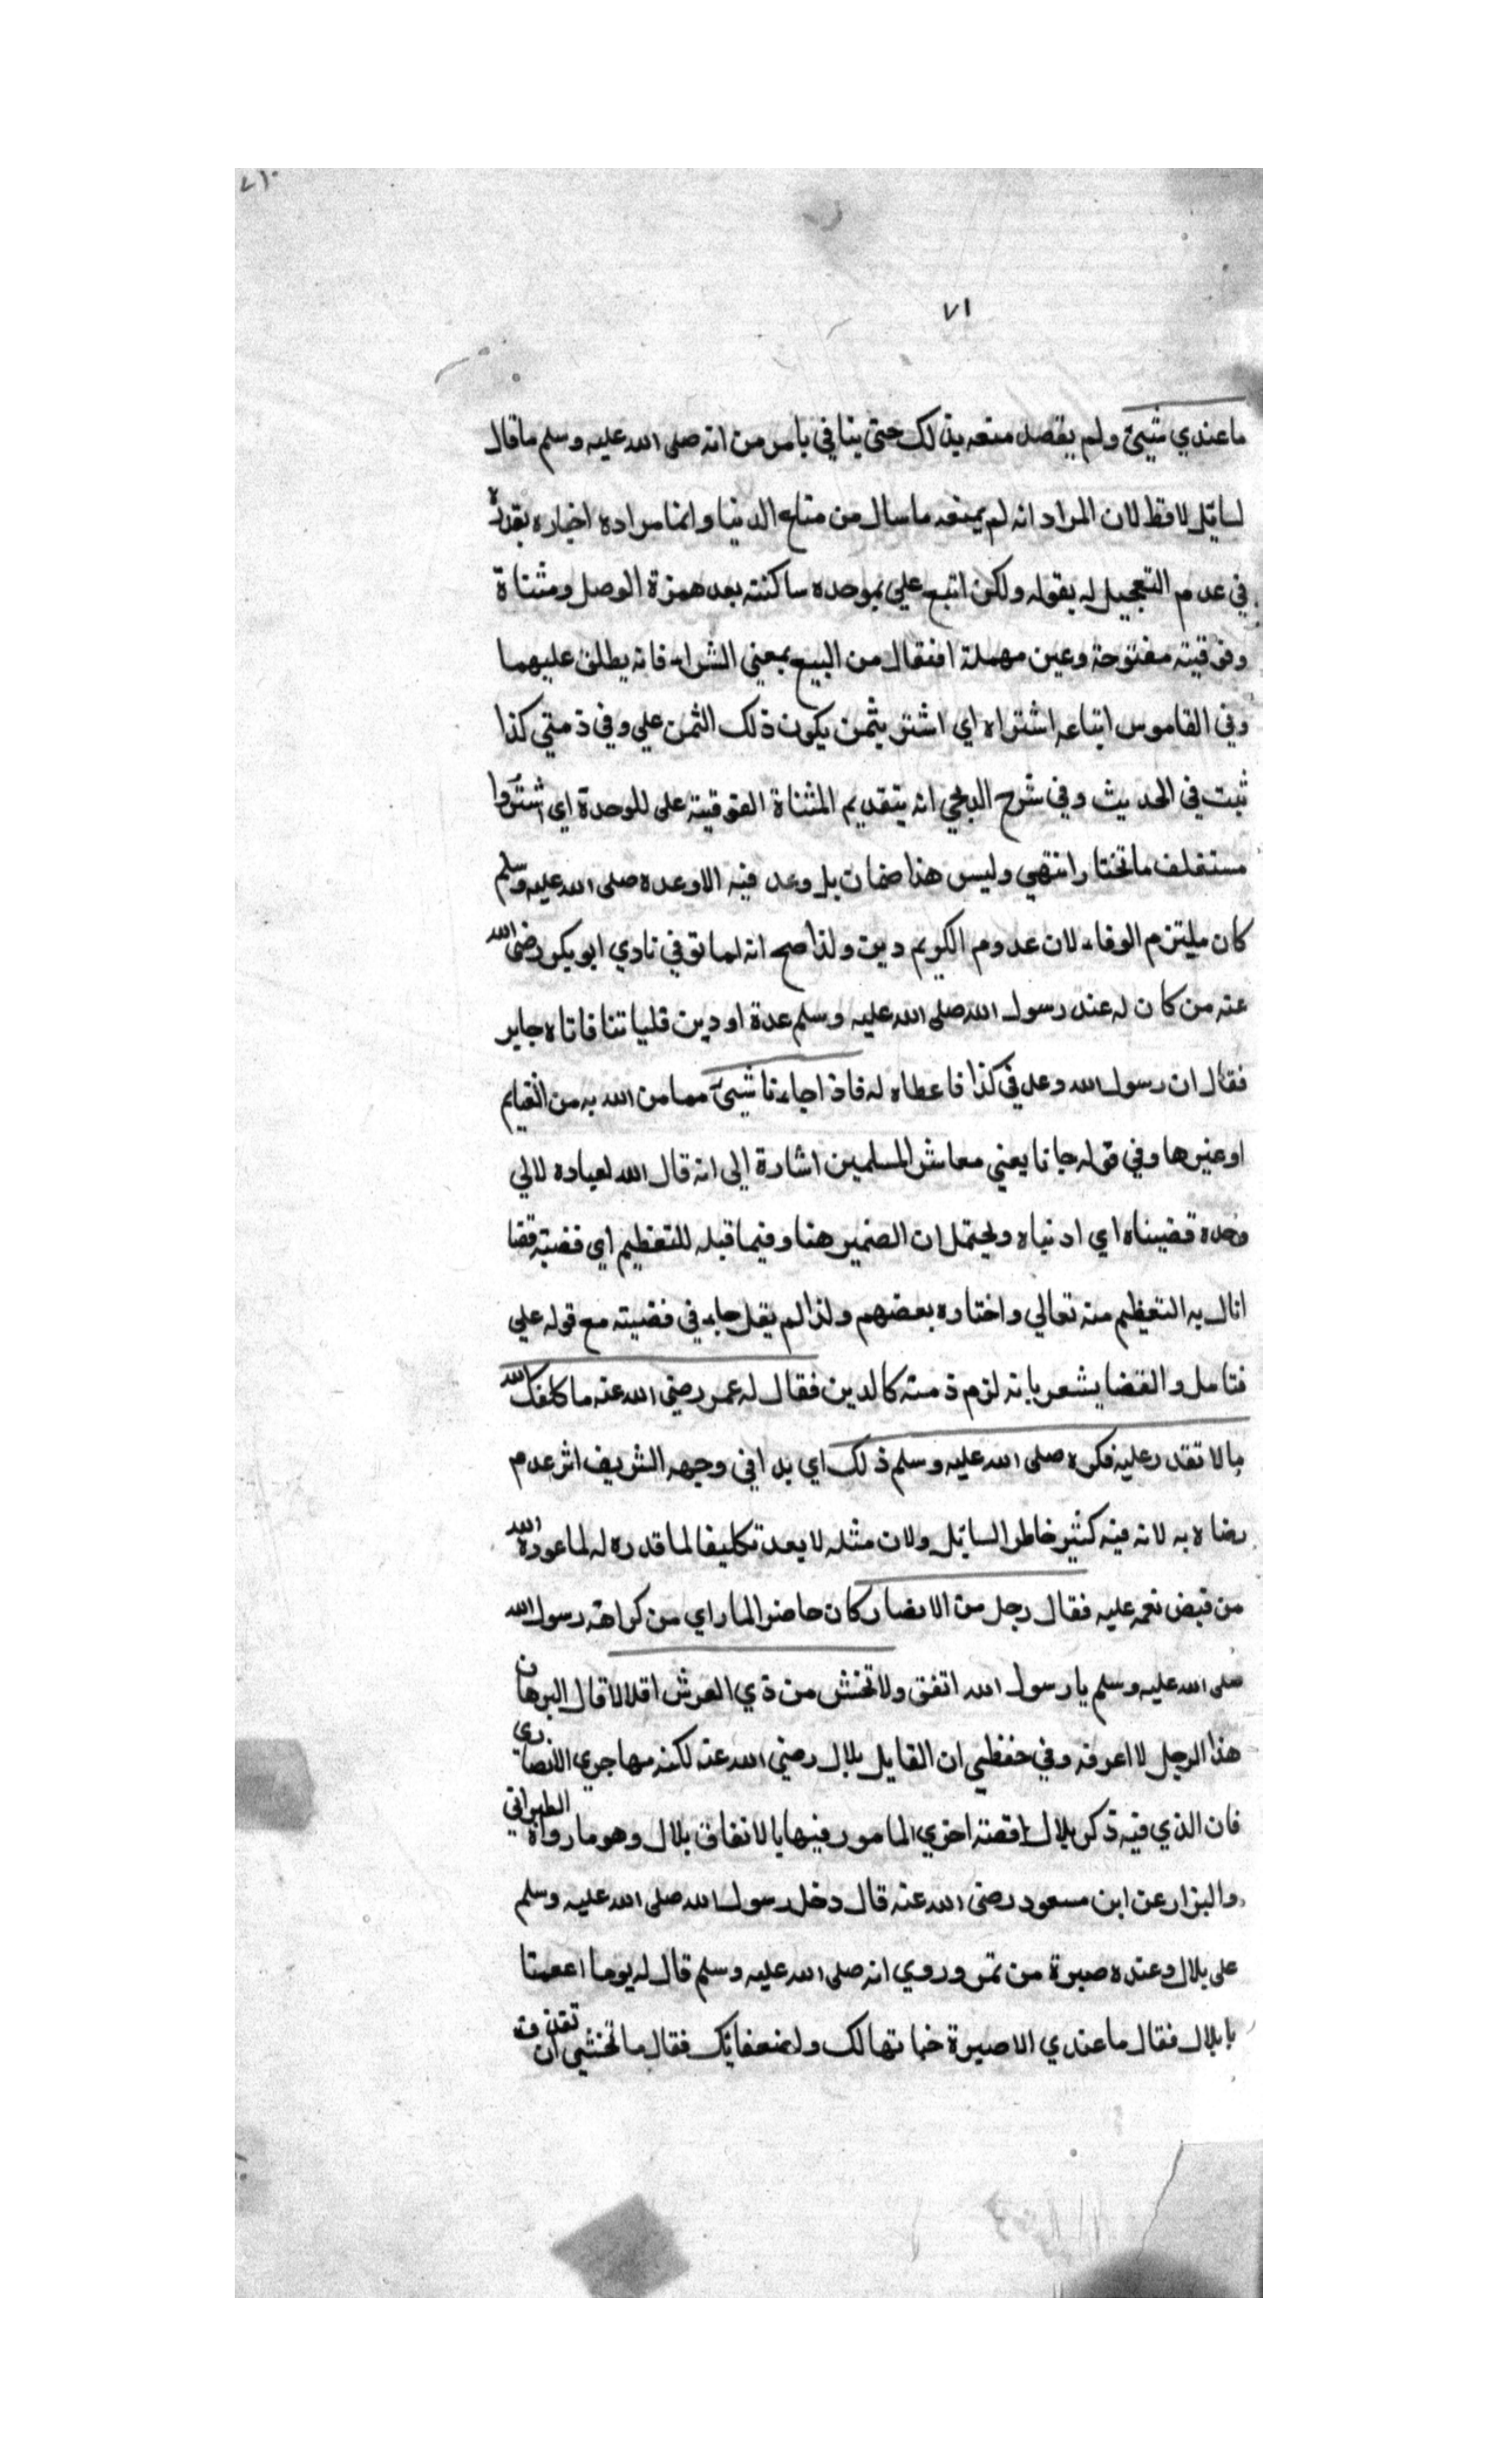 ٧١٠
٧١
ما عندي شيئ ولم يقصد منعه بذلك حتى ينافي بامر من انه صلى الله عليه وسلم ما قال
لسايل لا قط لان المراد انه لم يمنعه ما سال من متاع الدنيا وانما مراده اخباره بقدرة
في عدم التعجيل له بقوله ولكن ابتع علي بموحده ساكنته بعد همزة الوصل ومثناة
وفوقيته مفتوحة وعين مهملة افتقال من البيع بمعني الشراء فانه يطلق عليهما
وفي القاموس ابتاعه اشتراه اي اشتر بثمن يكون ذلك الثمن علي وفي ذمتي كذا
ثبت في الحديث وفي شرح الدلجي انه بتقديم المثناة الفوقيته على الموحدة اي اشتروا
مستغلف ما تختار انتهي وليس هذا ضمان بل وعد فيه الا وعده صلى الله عليه وسلم
كان ملتزم الوفاء لان عدوم الكريم دين ولذا صح انه لما توفي نادي ابو بكر رضى الله
عنه من كان له عند رسول الله صلى الله عليه وسلم عدة او دين فلياتنا فاتاه جابر
فقال ان رسول الله وعدني كذا فاعطاه له فاذا جاءنا شيئ مما من الله به من الغنايم
او غيرها وفي قوله جانا يعني معاشر المسلمين اشارة الى انه قال الله لعباده لا لي
وحده قضيناه اي ادنياه ويحتمل ان الضمير هنا وفيما قبله للتعظيم اي قضيته قضا
انال به التعظيم منه تعالي واختاره بعضهم ولذا لم يقل جاء في قضيته مع قوله علي
فتامل والقضا يشعر بانه لزم ذمته كالدين فقال له عمر رضي الله عنه ما كلفك الله
ما لا تقدر عليه فكره صلى الله عليه وسلم ذلك اي بدا في وجهه الشريف اثر عدم
رضاه به لانه فيه كثير خاطر السايل ولان مثله لا يعد تكليفا لما قدره له لما عوده الله
من فيض نعمه عليه فقال رجل من الانصار كان حاضرا لما راي من كراهة رسول الله
صلى الله عليه وسلم يا رسول الله انفق ولا تخش من ذي العرش اقلالا قال البرهان
هذا الرجل لا اعرفه وفي حفظي ان القايل بلال رضي الله عنه لكنه مهاجري لا انصاري
فان الذي فيه ذكر بلال قصته اخري المامور فيها بالانفاق بلال وهو ما رواه الطبراني
والبزار عن ابن مسعود رضى الله عنه قال دخل رسول الله صلى الله عليه وسلم
على بلال وعنده صبرة من تمر وروي انه صلى الله عليه وسلم قال له يوما اطعمنا
يا بلال فقال ما عندي الا صبرة خباتها لك ولضعفايك فقال ما تخشي ان تقذف